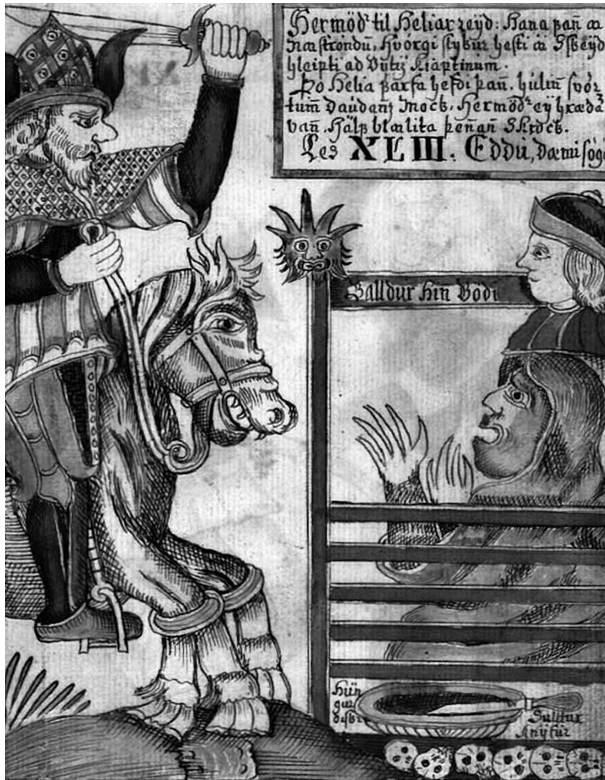 Hermöd til Heliar reÿd: þañ a
Nastrondū, Hvörgi hesti a
hleipti ad Vÿtis Kiaptinum.
Þo Helia þarfa hefdi þañ, hulin svör
tum daudans Hermödr eÿ hræda
vañ, Hälf blælita þeñan Skrock.
Les XLIII. Eddu, dæmisög
Balldur hin Godi
Hün
gur
disk
Sulltur
knÿfur